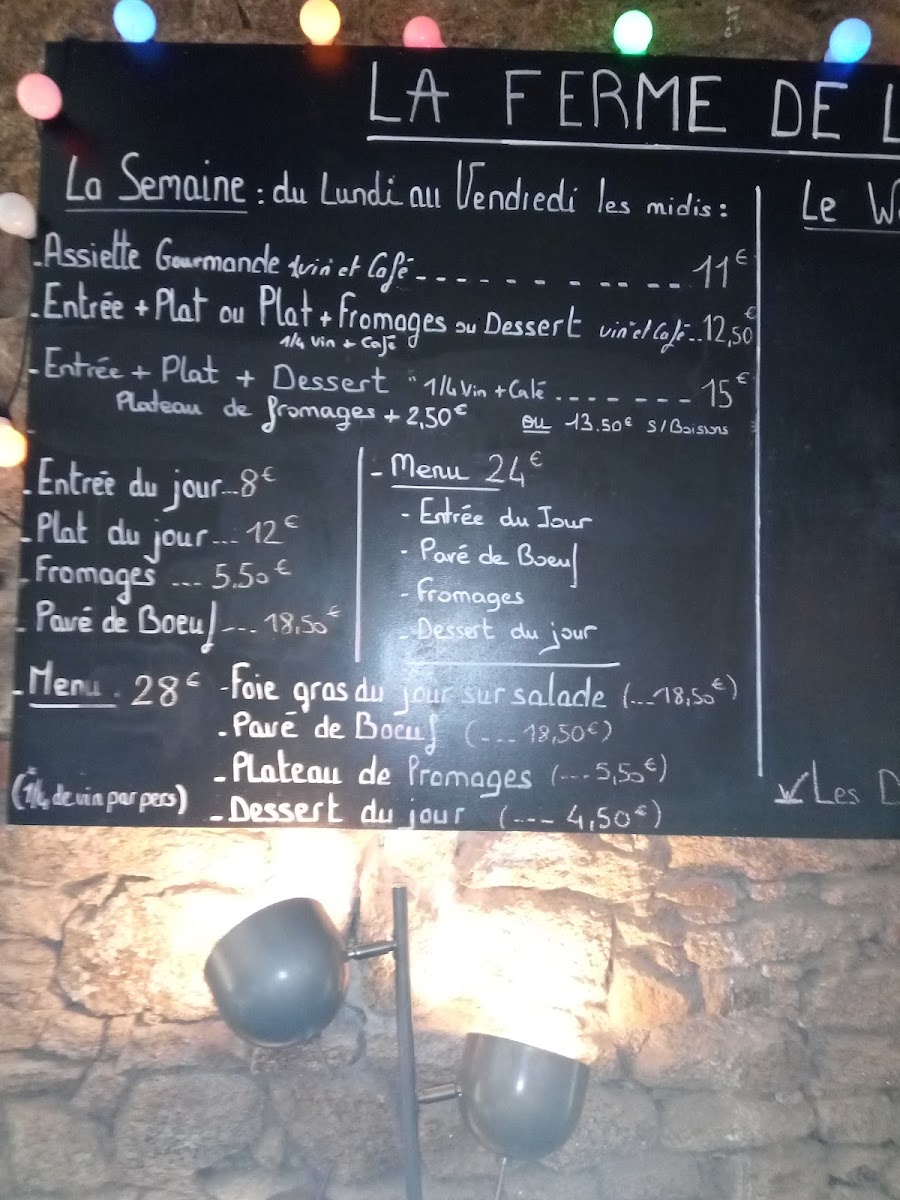 LA FERME DE L
La Semaine : du Lundi au Vendredi les midis :
- Assiette Gourmande vin et Café - - - - - - - - - - 11€
- Entrée + Plat ou Plat + Fromages ou Dessert vin et Café - .. 12,50€
1/4 Vin + Café
- Entrée + Plat + Dessert " 1/4 Vin + Café - - - - - - - 15€
Plateau de fromages + 2,50€ ou 13.50€ S/Boissons
- Entrée du jour...8€
- Plat du jour... 12€
- Fromages --- 5.50€
- Pavé de Boeuf --- 18,50€
- Menu 24€
- Entrée du Jour
- Pavé de Boeuf
- Fromages
- Dessert du jour
- Menu . 28€ - Foie gras du jour sur salade (...18,50€)
- Pavé de Boeuf (--- 18,50€)
- Plateau de Fromages (---5,50€)
(1/4 de vin par pers) - Dessert du jour (--- 4,50€)
Le W
Les D